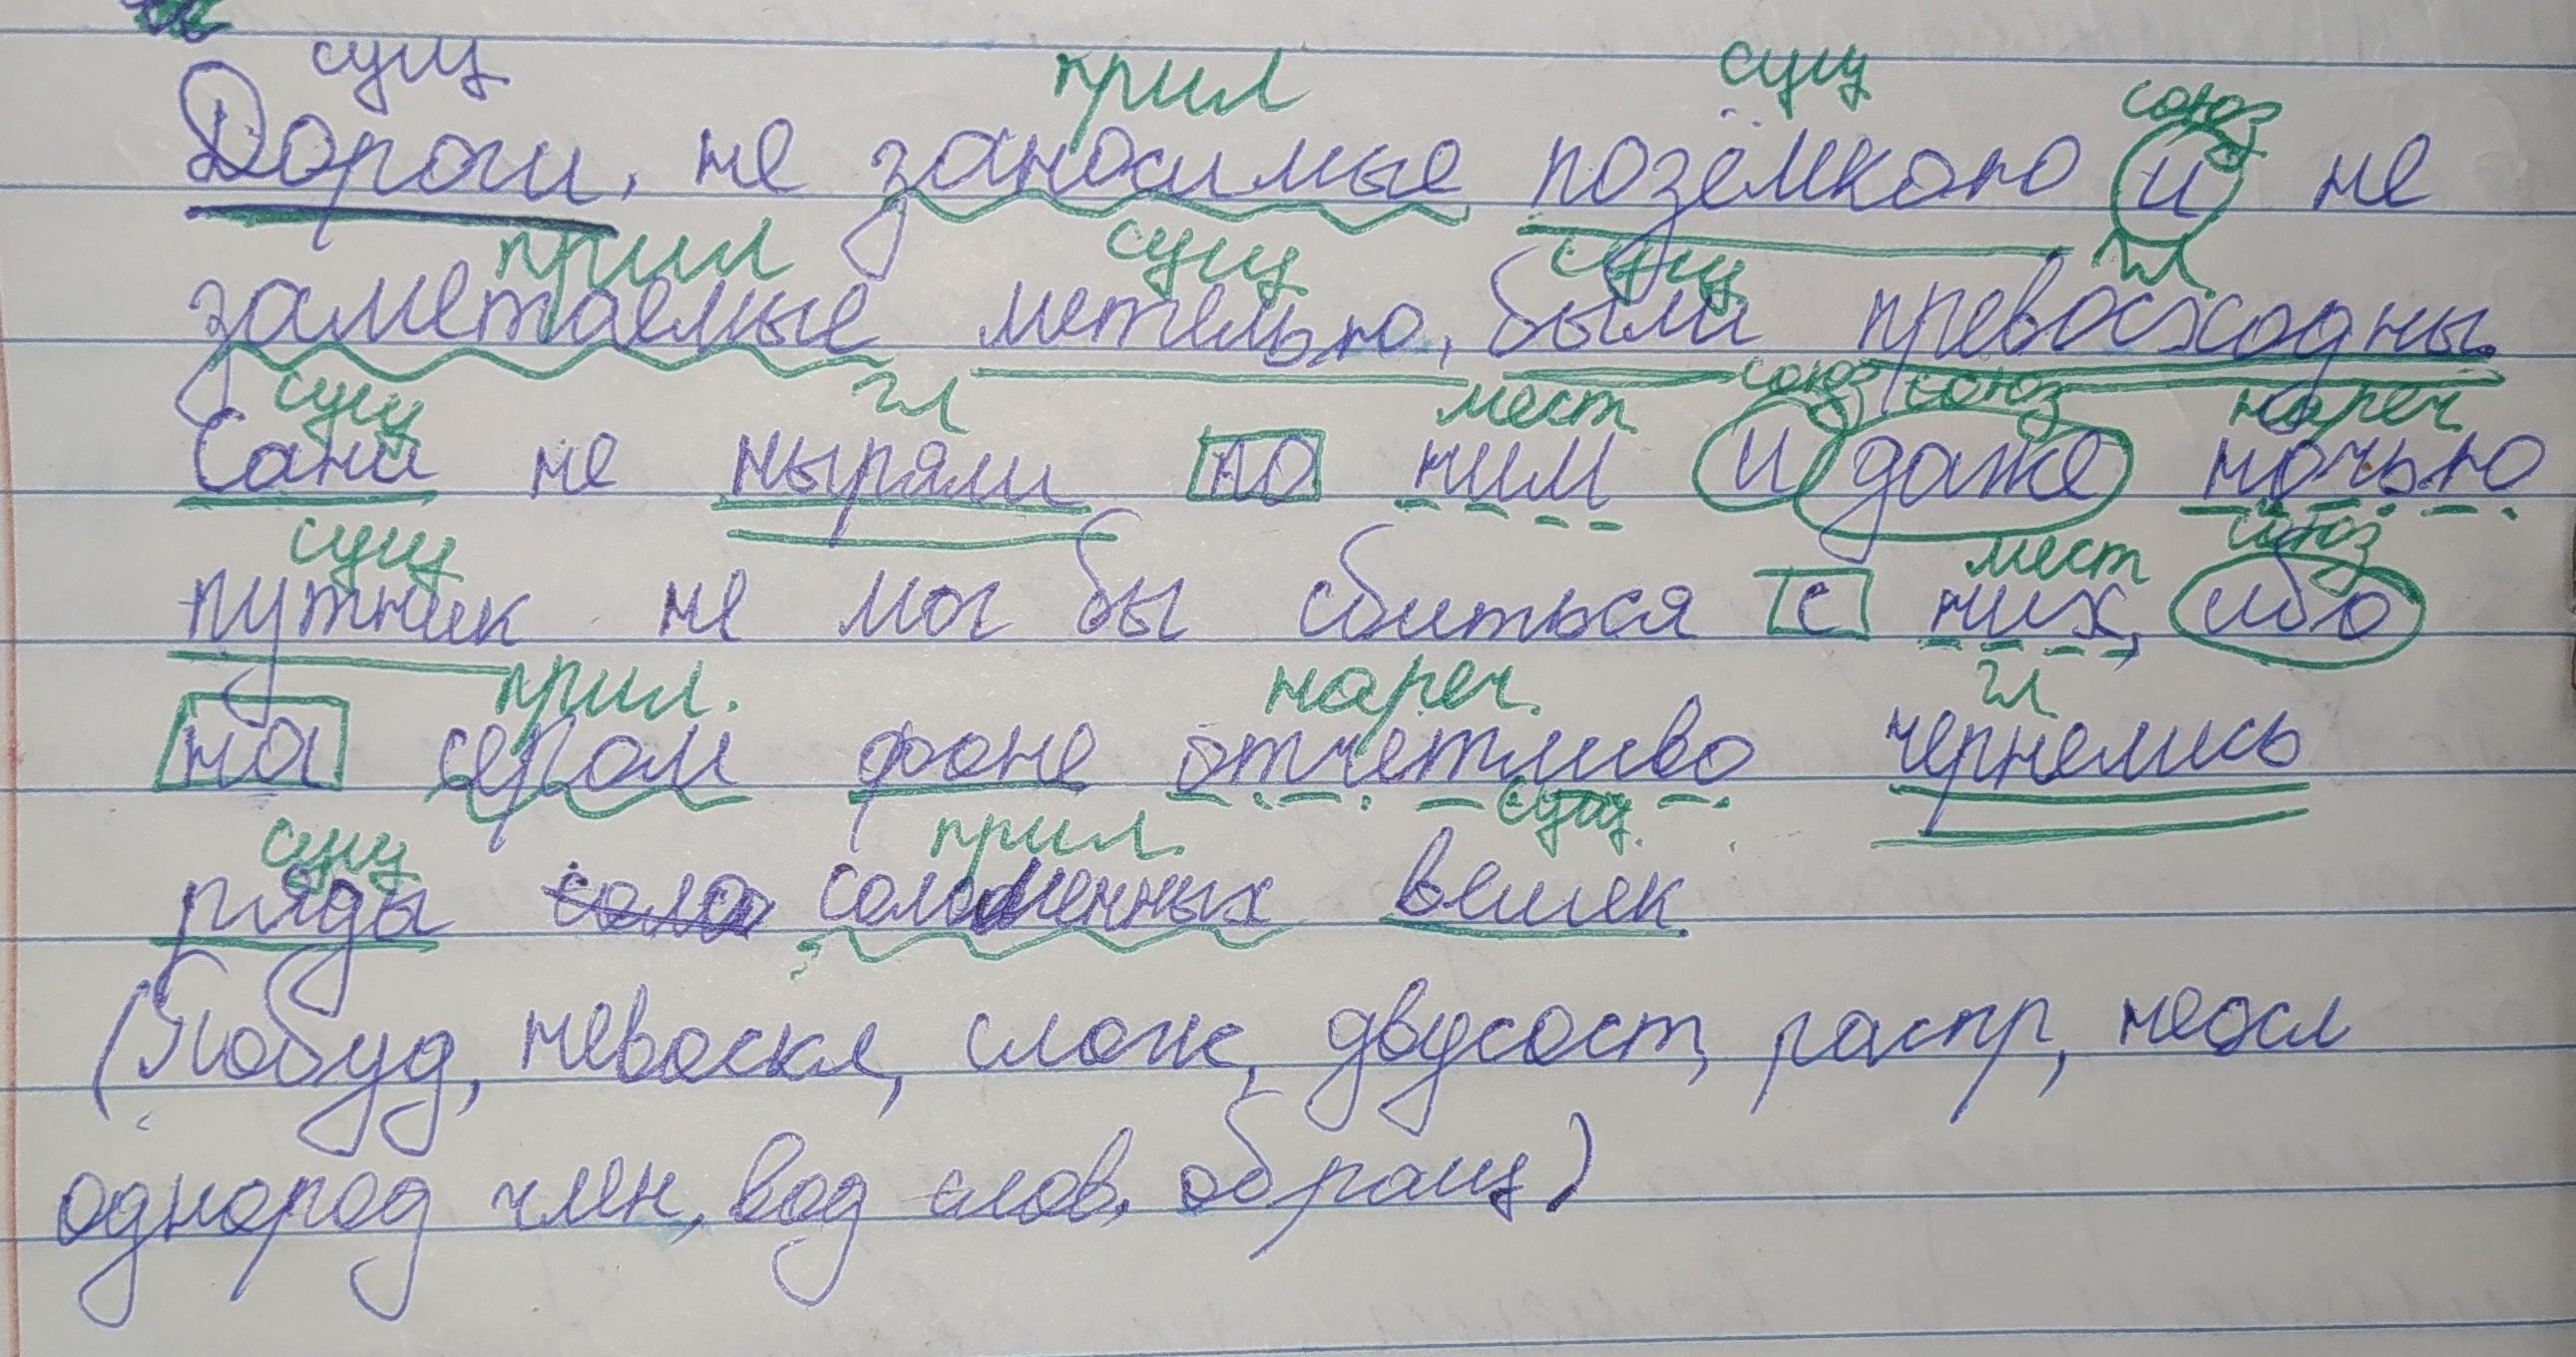 сущ прил сущ союз
Дороги, не заносимые позёмкою и не
прил сущ сущ гл
заметаемые метелью, были превосходны.
сущ гл мест союз союз нареч
Сани не ныряли по ним и даже ночью
сущ мест союз
путник не мог бы сбиться с них, ибо
прил. нареч. гл
на сером фоне отчётливо чернелись
сущ прил. сущ.
ряды соло соломенных вешек
(Побуд, невоскл, слож, двусост, распр, неосл
однород член, вод слов, обращ)